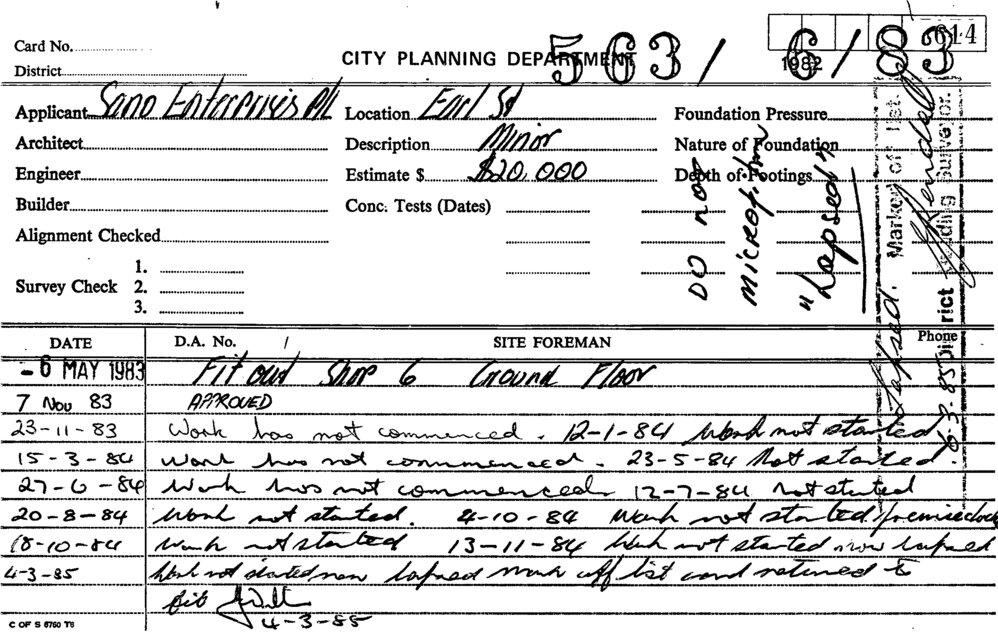 614
Card No.
CITY PLANNING DEPARTMENT 563/6/83
1982
District
Applicant Sano Enterprises P/L Location Earl St Foundation Pressure
Architect Description Minor Nature of Foundation
Engineer Estimate $ $20,000 Depth of Footings
Builder Conc. Tests (Dates)
Alignment Checked
1.
Survey Check 2.
3.
DO not
microfilm
"Lapsed"
Lapsed. Marked off list.
District Building Surveyor.
6.3.85
DATE D.A. No. / SITE FOREMAN Phone
- 6 MAY 1983 Fit out Shop 6 Ground Floor
7 Nov 83 APPROVED
23-11-83 Work has not commenced. 12-1-84 Work not started
15-3-84 Work has not commenced. 23-5-84 Not started.
27-6-84 Work has not commenced. 12-7-84 Not started
20-8-84 Work not started. 4-10-84 Work not started
18-10-84 Work not started 13-11-84 Work not started now lapsed
4-3-85 Work not started now lapsed mark off list and returned to
4-3-85
C OF S 6750 T6